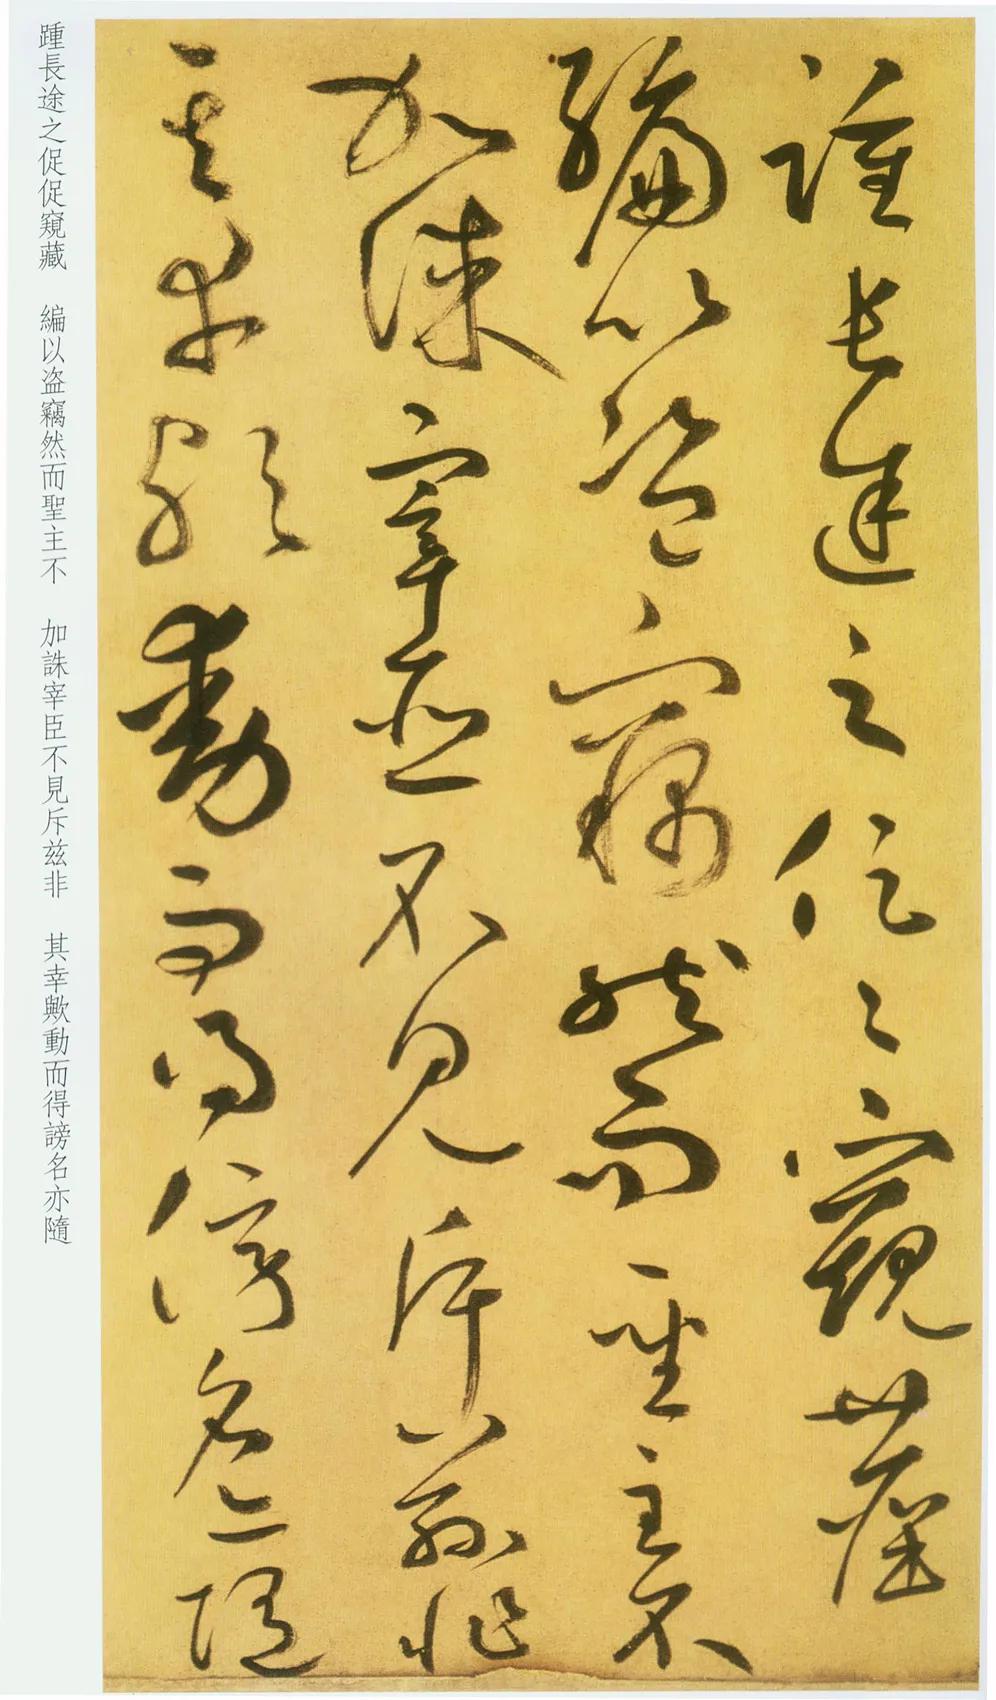 踵長途之促々窺藏
編以盜竊然而聖主不
加誅宰臣不見斥兹非
其幸歟動而得謗名亦隨
踵長途之促促窺藏　編以盗竊然而聖主不　加誅宰臣不見斥兹非　其幸歟動而得謗名亦隨